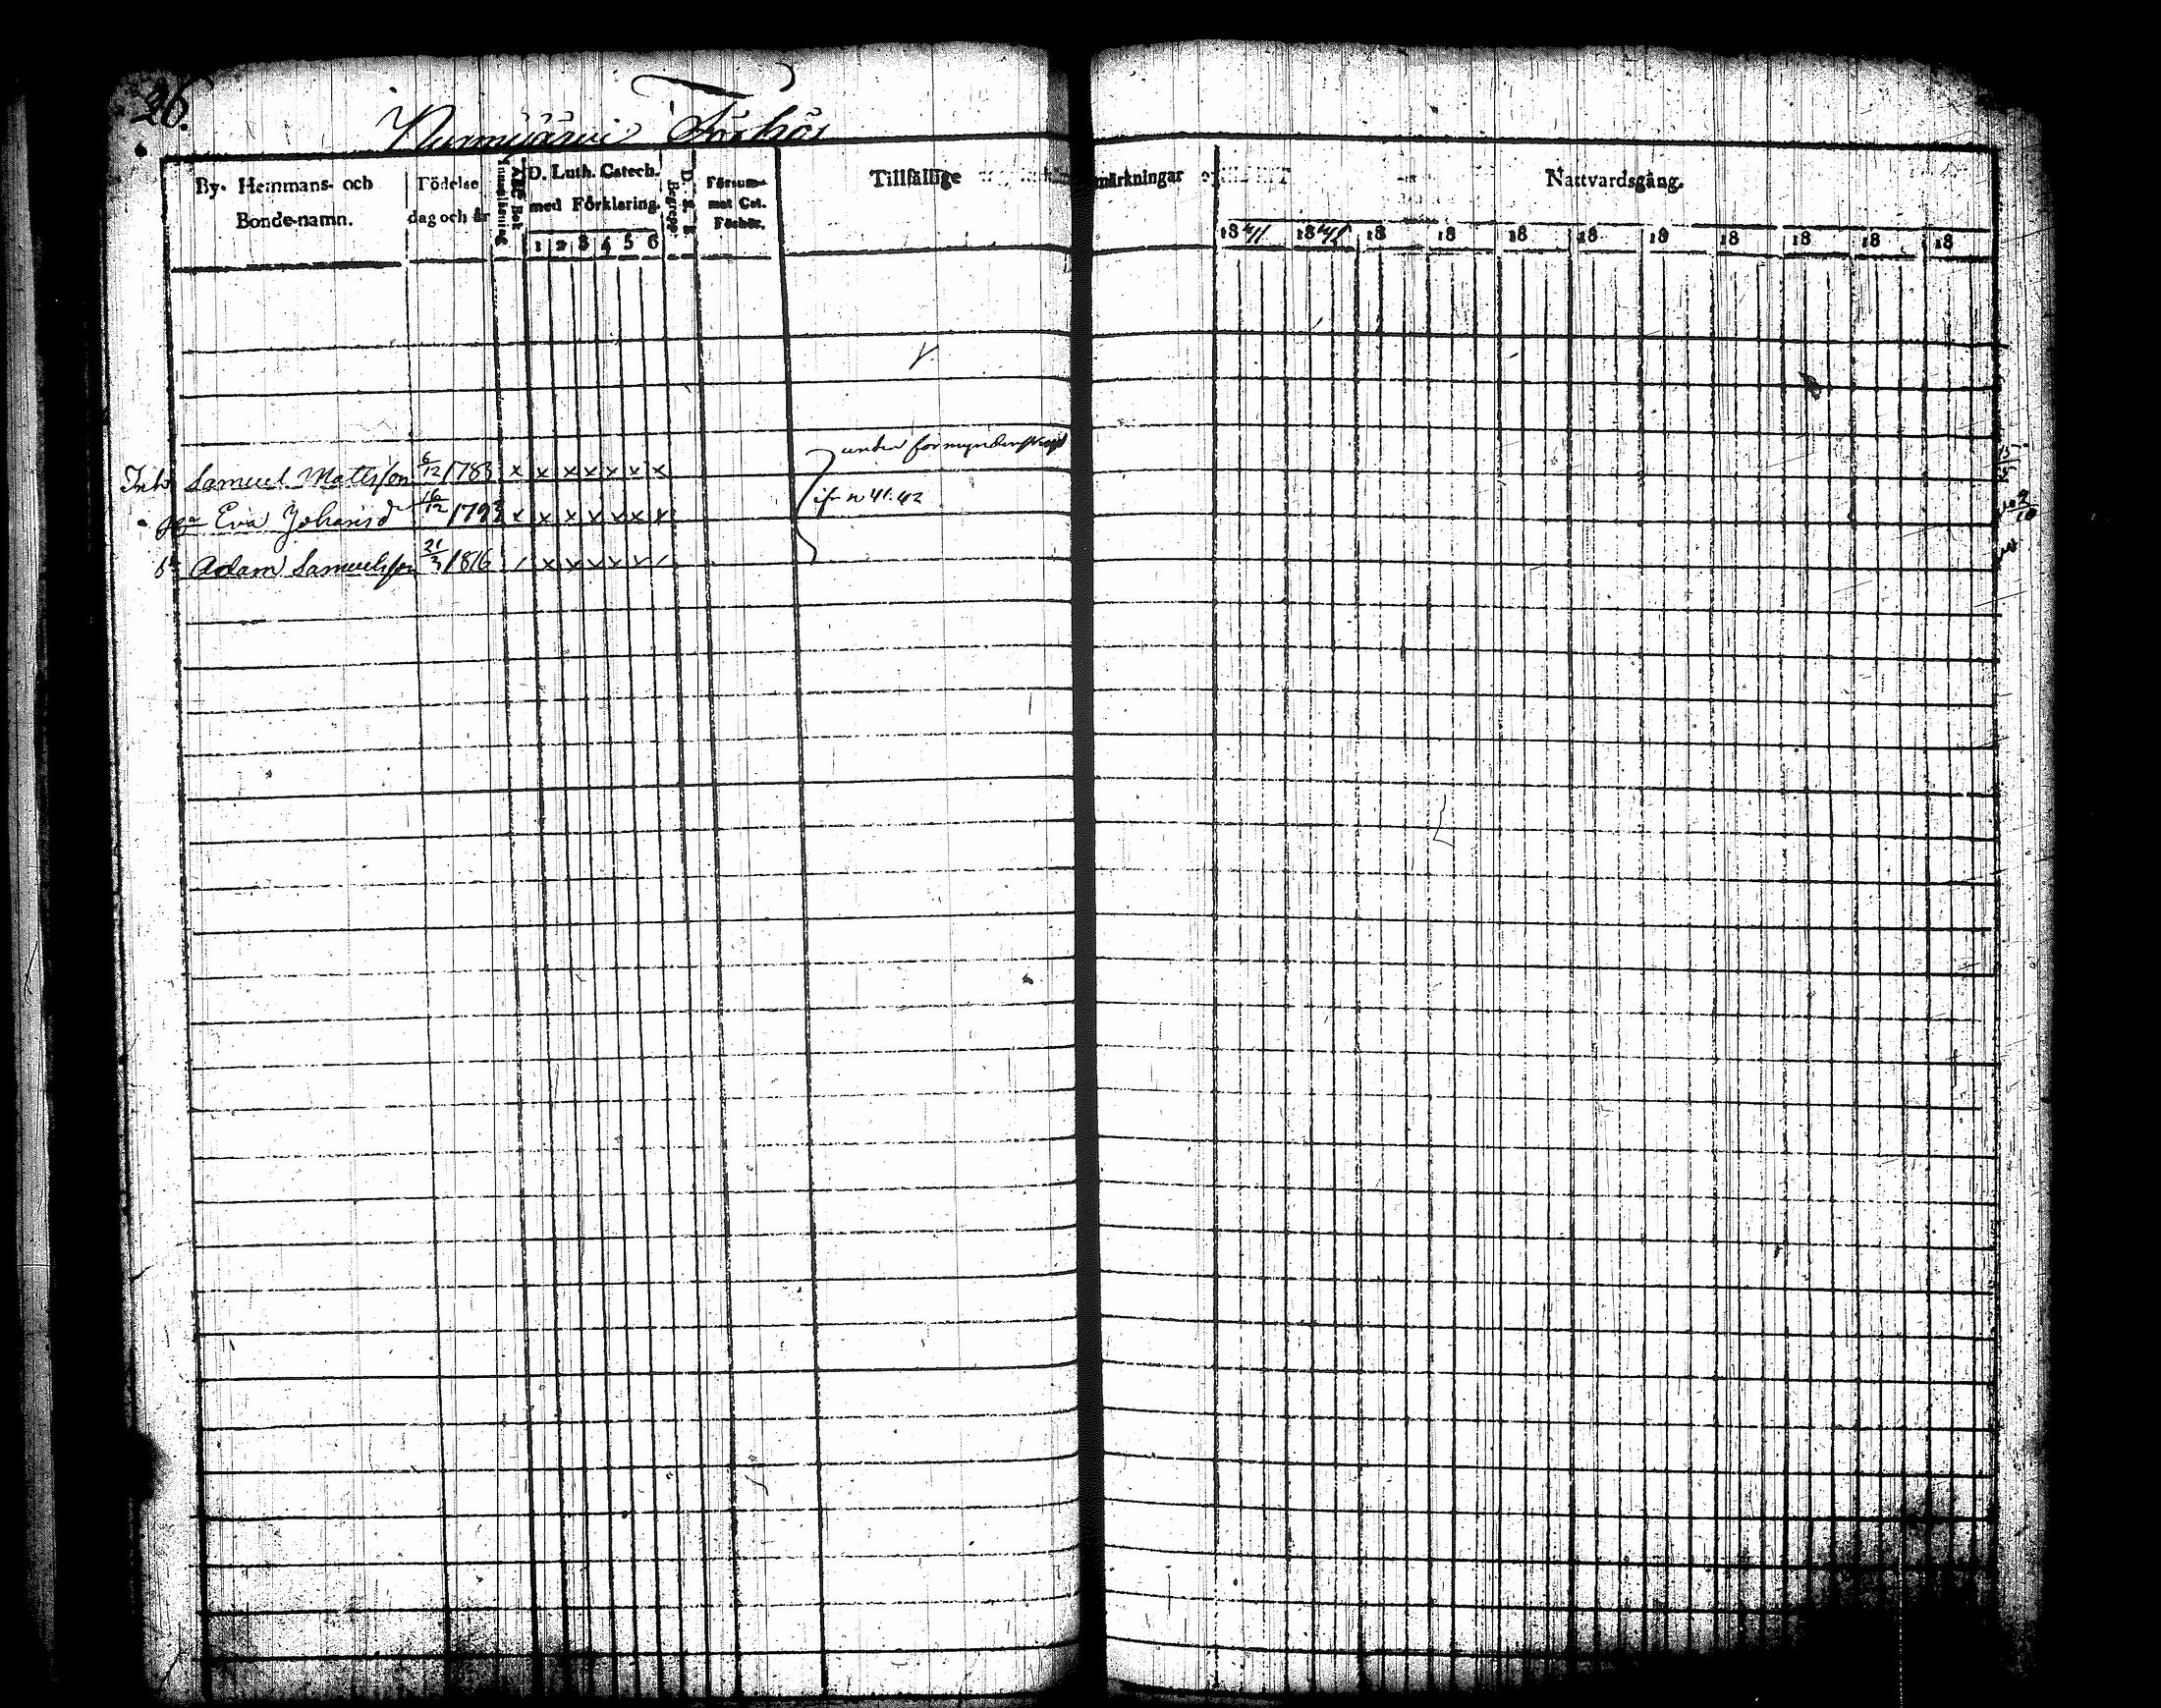 26.
Nurmijärvi Förhör
By- Hemmans- och Bonde-namn.
Födelse dag och år
Innanläsning
ABC Bok
D. Luth. Catech. med Förklaring.
1 2 3 4 5 6
Begrepp.
Försummat Cat. Förhör.
Tillfällige
märkningar
Nattvardsgång.
18 41 18 42 18 18 18 18 18 18 18 18 18
under förmynderskap
Inh. Samuel Matsson 6/12 1783 x x x x x x x
Eva Johansd 16/12 1793 x x x x x x x
if n 41. 42
Adam Samuelsson 21/3 1816 / x x x x x /